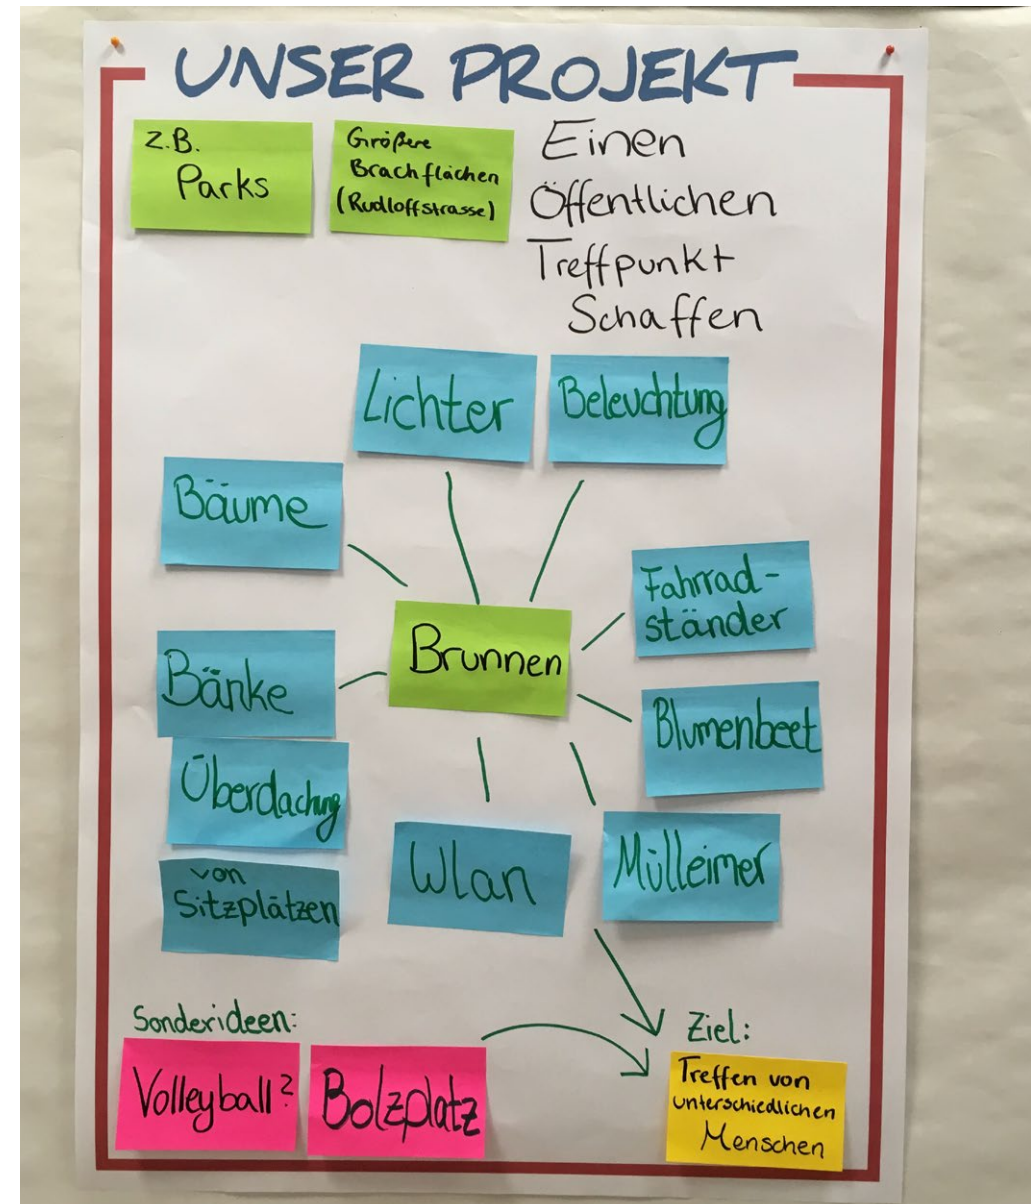 UNSER PROJEKT
z.B.
Parks
Größere
Brachflächen
(Rudloffstrasse)
Einen
Öffentlichen
Treffpunkt
Schaffen
Lichter
Beleuchtung
Bäume
Fahrrad-
ständer
Brunnen
Bänke
Blumenbeet
Überdachung
von
Sitzplätzen
Wlan
Mülleimer
Sonderideen:
Volleyball?
Bolzplatz
Ziel:
Treffen von
unterschiedlichen
Menschen